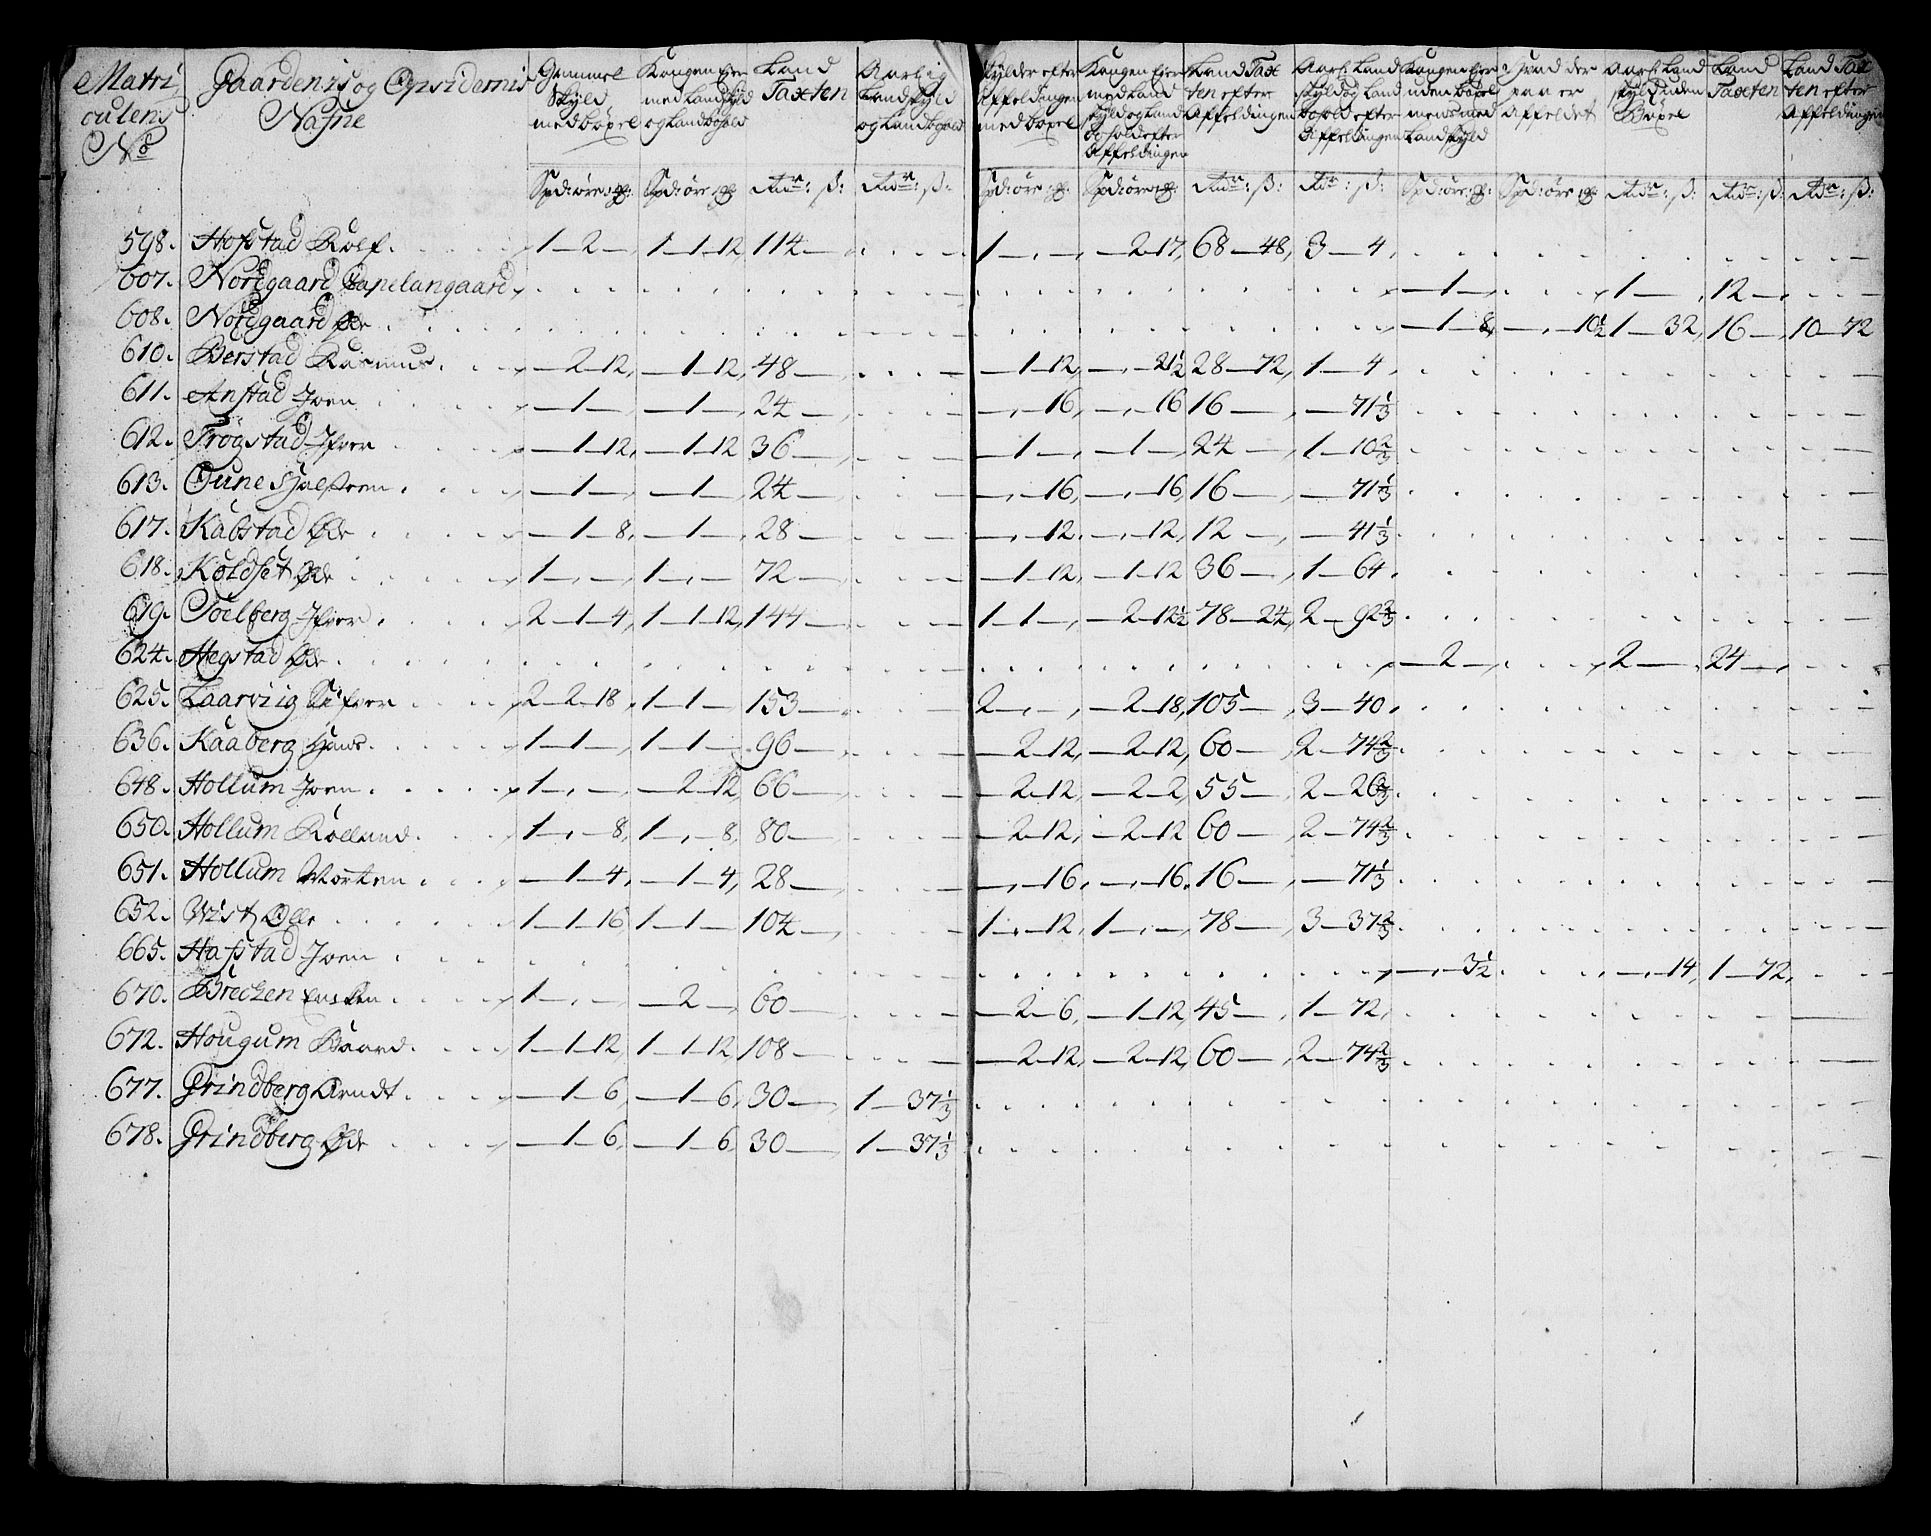 Matri
culens
No
Gaardenis og Opsidernis
Nafne
Gammel
Skyld
med böxel
Kongen Eyer
med Landskyld
og Landbohold
Land
Taxten
Aarlig
Landskyld
og Landbohold
Skylder efter
Affeldingen
med böxel
Kongen Eyer
med Land
skyld og Land
bohold efter
Affeldingen
Land Tax
ten efter
Affeldingen
Aarl: Land
skyld og Land
bohold efter
Affeldingen
Kongen Eyer
uden böxel
mens med
Landskyld
der
paa er
Affeldet
Aarl: Land
skyld uden
Böxel
Land
Taxten
Land Tax
ten efter
Affeldingen
Spd: öre: Spd: öre: Rdr: ß: Rdr: ß: Spd: öre: Spd: öre: Rdr: ß: Rdr: ß: Spd: öre: Spd: öre: Rdr: ß: Rdr: ß: Rdr: ß:
598. Hofstad Rolf. 1—2—, 1—1—12, 114— 1—,—, —2—17, 68—48, 3—4,
607. Nordgaard Capelangaard —1—, 1—, 12—,
608. Nordgaard Öde —1—8, —,—10½ 1—32, 16—, 10—72
610. Berstad Rasmus. —2—12, —1—12, 48— —1—12, —,—21½ 28—72, 1—4
611. Anstad Joen —1—, —1—, 24— —,—16, —,—16 16—, —71⅓
612. Trögstad Ifver —1—12, —1—12 36 —1—, —1—, 24—, 1—10⅔
613. Oune Halsteen. —1—, —1—, 24— —,—16, —,—16, 16— —71⅓
617. Kabstad Öde —1—8, —1—, 28— —,—12, —,—12, 12—, —41⅓
618. Koldset Öde 1—,—, 1—,— 72— —1—12, —1—12 36—, 1—64
619. Soelberg Ifver. 2—1—4, 1—1—12, 144 1—1—, —2—12½ 78—24, 2—92⅔
624. Hegstad Öde. —2—, 2—, 24—,
625. Laarviig Sifver 2—2—18, 1—1—, 153— 2—,—, —2—18, 105—, 3—40,
636. Kaaberg Hans. 1—1—, 1—1—, 96— —2—12, —2—12, 60—, 2—74⅔
648. Hollum Joen. 1—,— —2—12, 66— —2—12, —2—2, 55— 2—26⅔
650. Hollum Rolland. 1—,—8, 1—,—8, 80— —2—12, —2—12 60— 2—74⅔
651. Hollum Morten —1—4, —1—4, 28— —,—16, —,—16, 16—, —71⅓
652. Wist Olle 1—1—16 1—1—, 104— 1—,—12, 1—,—, 78— 3—37⅔
665. Hafstad Joen —,—3½ —,—14, 1—72,
670. Brechen 1—,— —2—, 60— —2—6, —1—12, 45—, 1—72,
672. Hougum Baard. 1—1—12, 1—1—12, 108— —2—12, —2—12, 60—, 2—74⅔
677. Grindberg Arndt. —1—6, —1—6, 30—, 1—37⅓
678. Grindberg Öde —1—6, —1—6, 30—, 1—37⅓